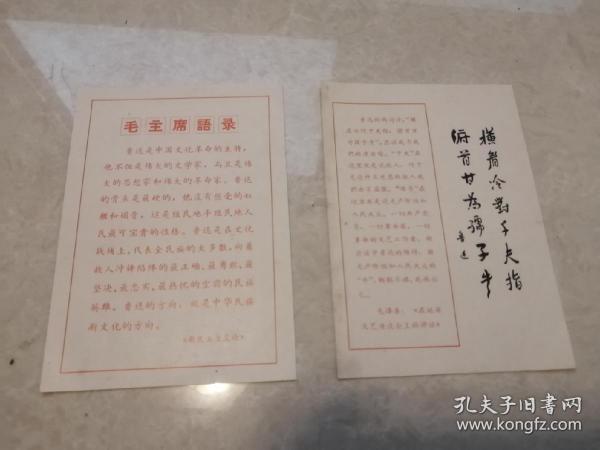 毛主席語录
鲁迅是中国文化革命的主将，
他不但是伟大的文学家，而且是伟
大的思想家和伟大的革命家。鲁迅
的骨头是最硬的，他没有丝毫的奴
颜和媚骨，这是殖民地半殖民地人
民最可宝贵的性格。鲁迅是在文化
战线上，代表全民族的大多数，向着
敌人冲锋陷阵的最正确、最勇敢、最
坚决、最忠实、最热忱的空前的民族
英雄。鲁迅的方向，就是中华民族
新文化的方向。
《新民主主义论》
鲁迅的两句诗，“横
眉冷对千夫指，俯首甘
为孺子牛”，应该成为我
们的座右铭。“千夫”在
这里就是说敌人，对于
无论什么凶恶的敌人我
们决不屈服。“孺子”在
这里就是说无产阶级和
人民大众。一切共产党
员，一切革命家，一切
革命的文艺工作者，都
应该学鲁迅的榜样，做
无产阶级和人民大众的
“牛”，鞠躬尽瘁，死而
后已。
毛泽东：《在延安
文艺座谈会上的讲话》
橫眉冷對千夫指
俯首甘為孺子牛
鲁迅
孔夫子旧书网
www.kongfz.com